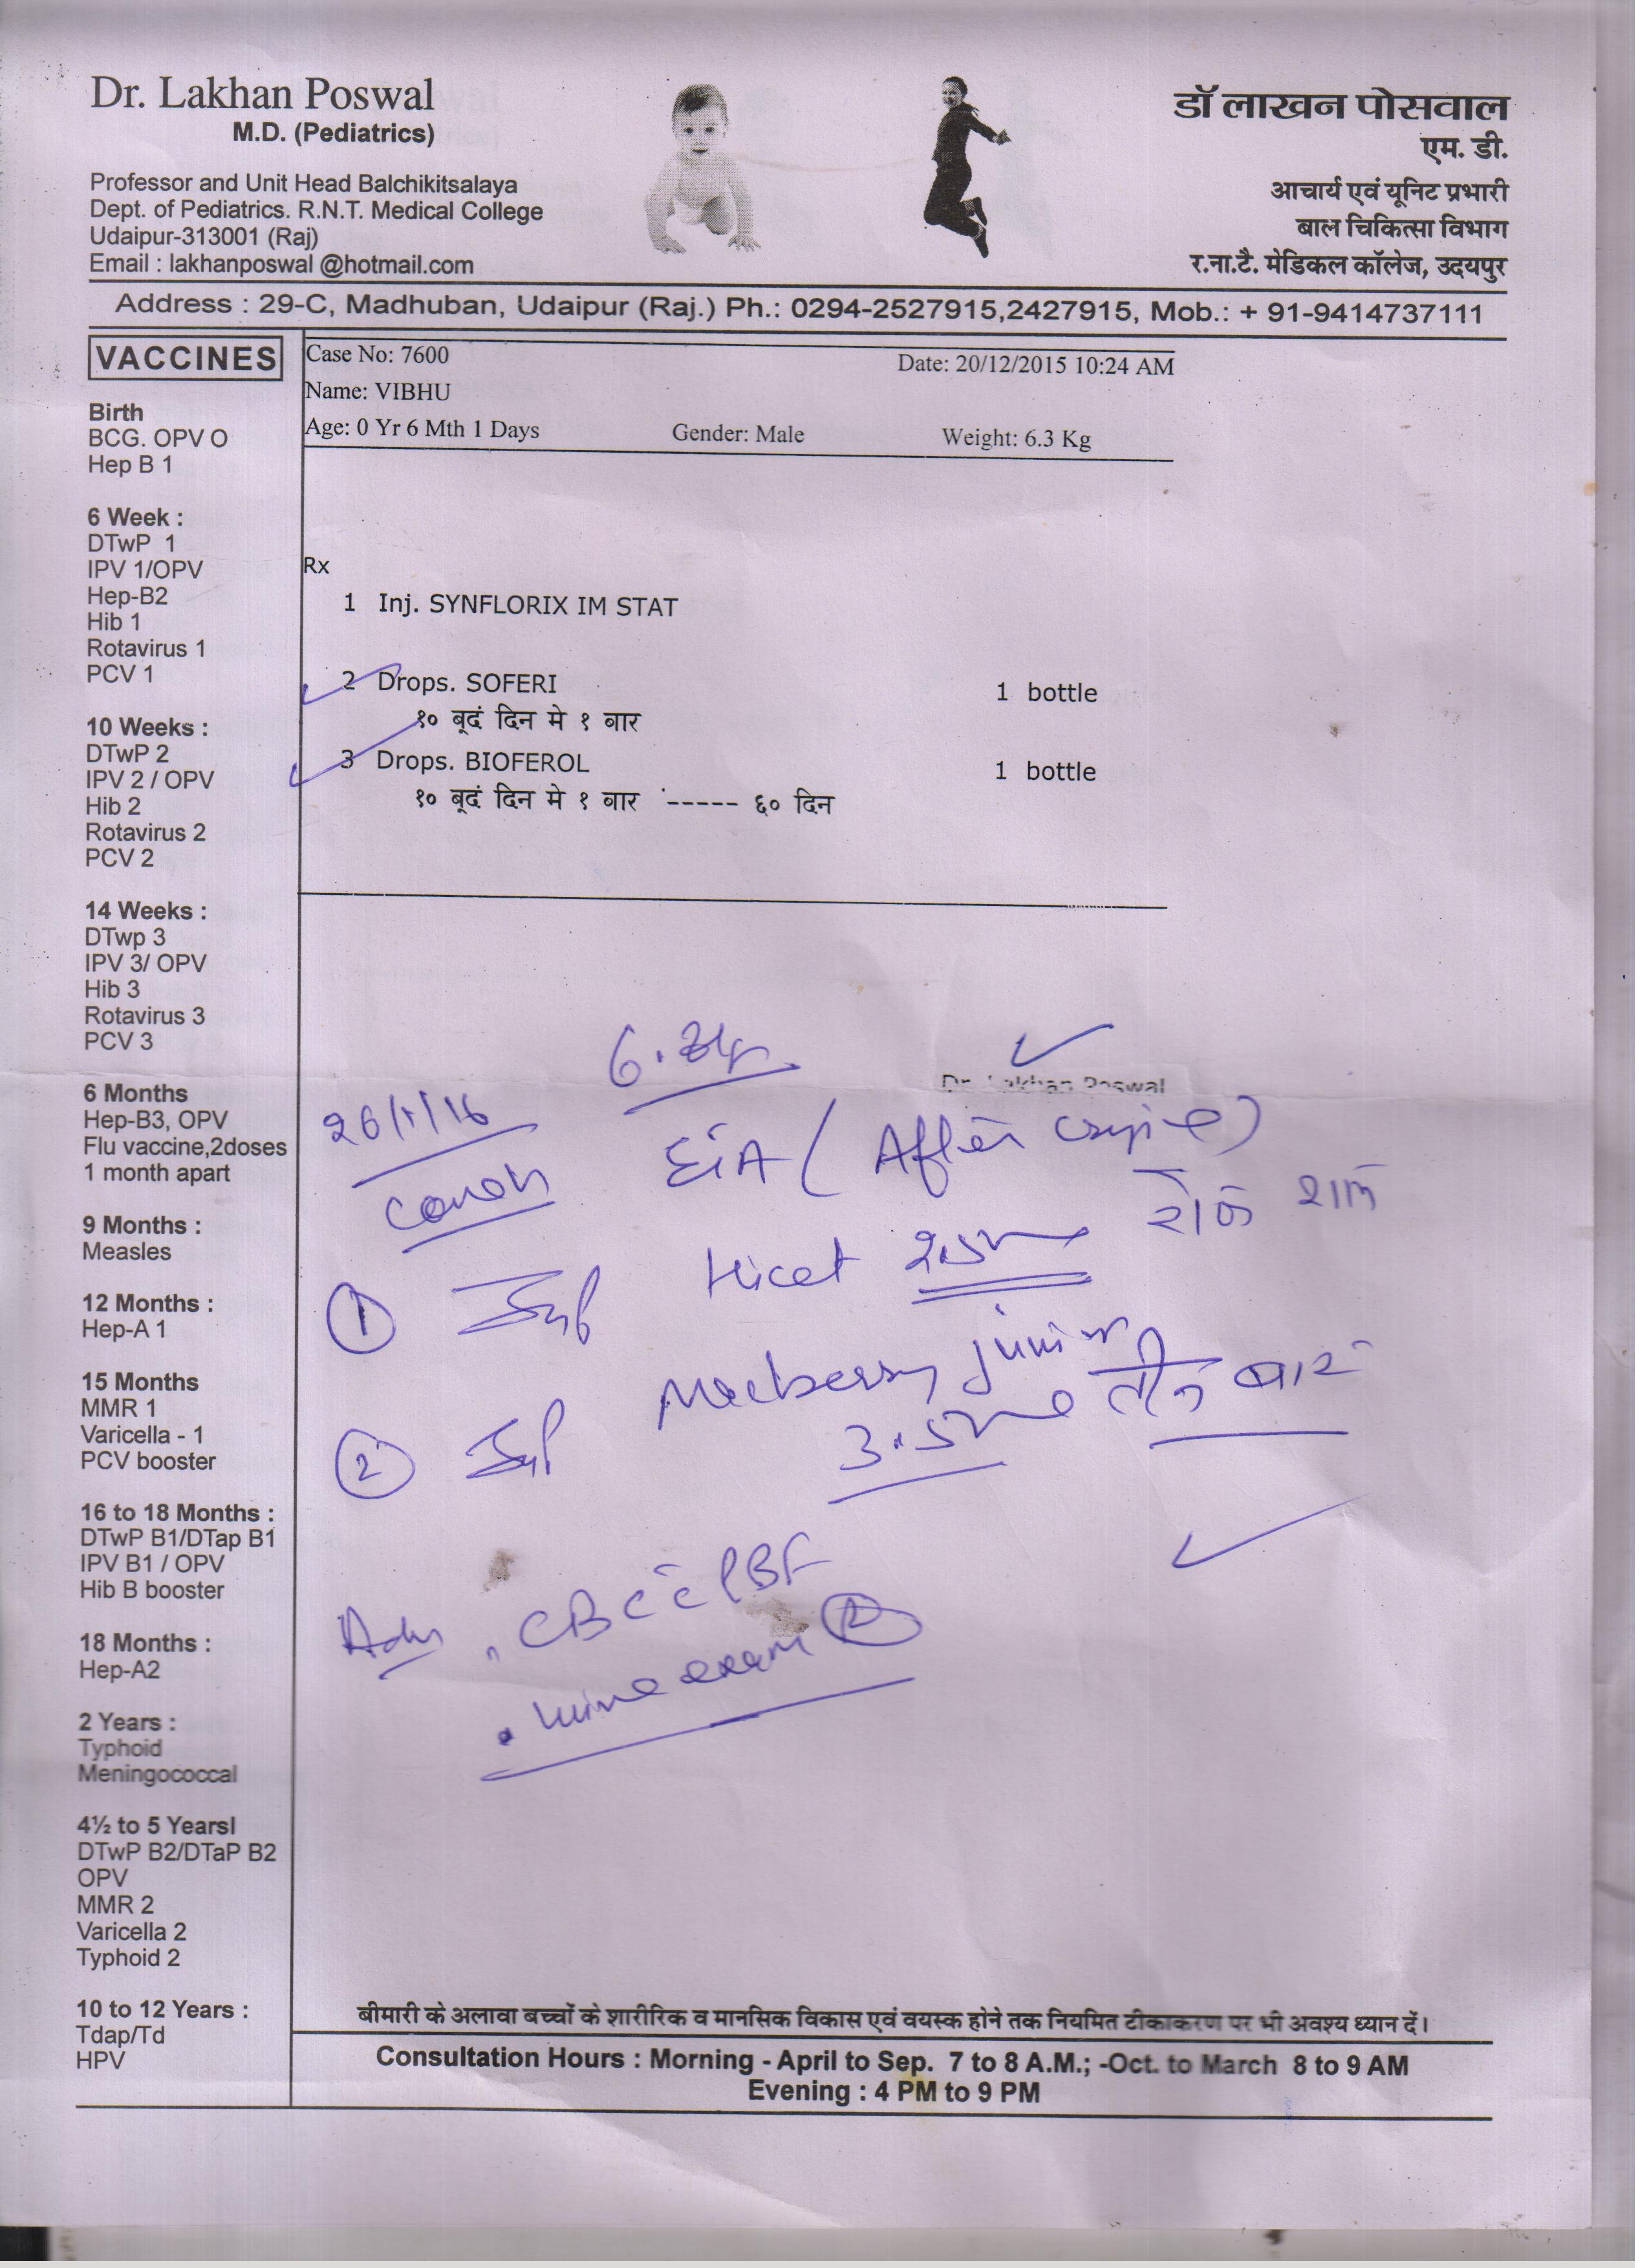 Dr. Lakhan Poswal
M.D. (Pediatrics)
Professor and Unit Head Balchikitsalaya
Dept. of Pediatrics. R.N.T. Medical College
Udaipur-313001 (Raj)
Email : lakhanposwal @hotmail.com
डॉ लाखन पोसवाल
एम. डी.
आचार्य एवं यूनिट प्रभारी
बाल चिकित्सा विभाग
र.ना.टै. मेडिकल कॉलेज, उदयपुर
Address : 29-C, Madhuban, Udaipur (Raj.) Ph.: 0294-2527915,2427915, Mob.: + 91-9414737111
VACCINES
Birth
BCG. OPV O
Hep B 1
6 Week :
DTwP 1
IPV 1/OPV
Hep-B2
Hib 1
Rotavirus 1
PCV 1
10 Weeks :
DTwP 2
IPV 2 / OPV
Hib 2
Rotavirus 2
PCV 2
14 Weeks :
DTwp 3
IPV 3/ OPV
Hib 3
Rotavirus 3
PCV 3
6 Months
Hep-B3, OPV
Flu vaccine,2doses
1 month apart
9 Months :
Measles
12 Months :
Hep-A 1
15 Months
MMR 1
Varicella - 1
PCV booster
16 to 18 Months :
DTwP B1/DTap B1
IPV B1 / OPV
Hib B booster
18 Months :
Hep-A2
2 Years :
Typhoid
Meningococcal
4½ to 5 Yearsl
DTwP B2/DTaP B2
OPV
MMR 2
Varicella 2
Typhoid 2
10 to 12 Years :
Tdap/Td
HPV
Case No: 7600 Date: 20/12/2015 10:24 AM
Name: VIBHU
Age: 0 Yr 6 Mth 1 Days Gender: Male Weight: 6.3 Kg
Rx
1 Inj. SYNFLORIX IM STAT
2 Drops. SOFERI 1 bottle
१० बूदं दिन मे १ बार
3 Drops. BIOFEROL 1 bottle
१० बूदं दिन मे १ बार ----- ६० दिन
Dr. Lakhan Poswal
26/1/16
EiA ( After )
① Hicet 2.5ml
② Macberry junior
3.5ml तीन बार
Adv . CBC c̄ PBF
. urine exam Ⓡ
बीमारी के अलावा बच्चों के शारीरिक व मानसिक विकास एवं वयस्क होने तक नियमित टीकाकरण पर भी अवश्य ध्यान दें।
Consultation Hours : Morning - April to Sep. 7 to 8 A.M.; -Oct. to March 8 to 9 AM
Evening : 4 PM to 9 PM